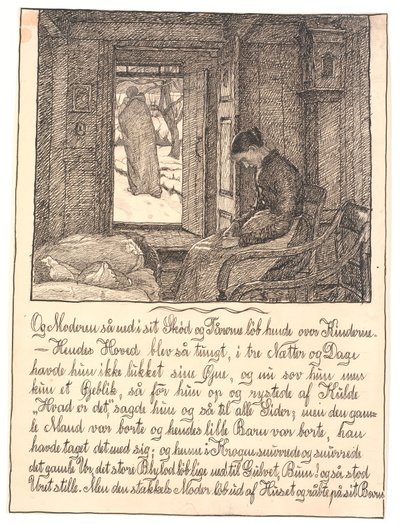 Og Moderen så ned i sit Skød og Tårerne løb hende over Kinderne.
— Hendes Hoved blev så tungt, i tre Nætter og Dage
havde hun ikke lukket sine Øjne, og nu sov hun, men
kun et Øjeblik, så fór hun op og rystede af Kulde
„Hvad er det", sagde hun og så til alle Sider; men den gam-
le Mand var borte og hendes lille Barn var borte, han
havde taget det med sig; og henne i Krogen snurrede og snurrede
det gamle Ur, det store Blylod løb lige ned til Gulvet, Bum! og så stod
Uret stille. Men den stakkels Moder løb ud af Huset og råbte på sit Barn